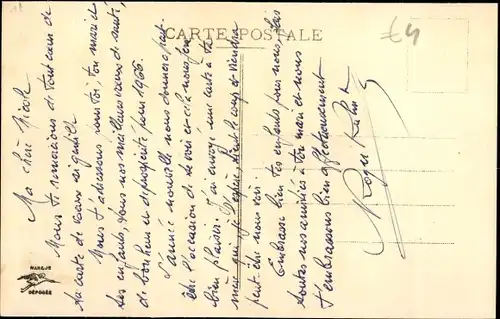 CARTE POSTALE
£4
Ma chère Nicole
Nous te remercions de tout cœur de
ta carte de vœux reçue ille
Nous t'adressons, pour toi, ton mari et
les enfants, tous nos meilleurs vœux de santé,
de bonheur et de prospérité pour 1966.
L'année nouvelle nous donnera peut-
être l'occasion de te voir et cela nous fera
bien plaisir. J'ai envoyé une carte à
qui j'espère, et viendra
peut-être nous voir.
Embrasse bien tes enfants pour nous, dis
toutes nos amitiés à ton mari et nous
t'embrassons bien affectueusement
Roger
MARQUE
DÉPOSÉE